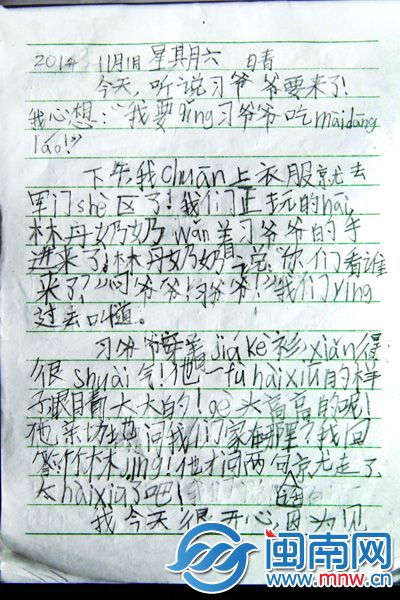 2014 11月1日 星期六 晴
今天,听说习爷爷要来了!
我心想:“我要qǐng习爷爷吃màidāng
láo!”
下午我chuān上衣服就去
军门shè区了!我们正玩的hāi,
林丹奶奶wǎn着习爷爷的手
进来了!林丹奶奶说:“你们看谁
来了?”“习爷爷!习爷爷!”我们yíng
过去叫道。
习爷爷穿着jiákè衫,xiǎn得
很shuài气!他一fùhàixiū的样
子,眼睛大大的!gè头高高的呢!
他亲切地问我们家在哪里?我回
答:竹林jìng!他才问两句就走了
太hàixiū了吧!
我今天很开心,因为见
闽南网
www.mnw.cn